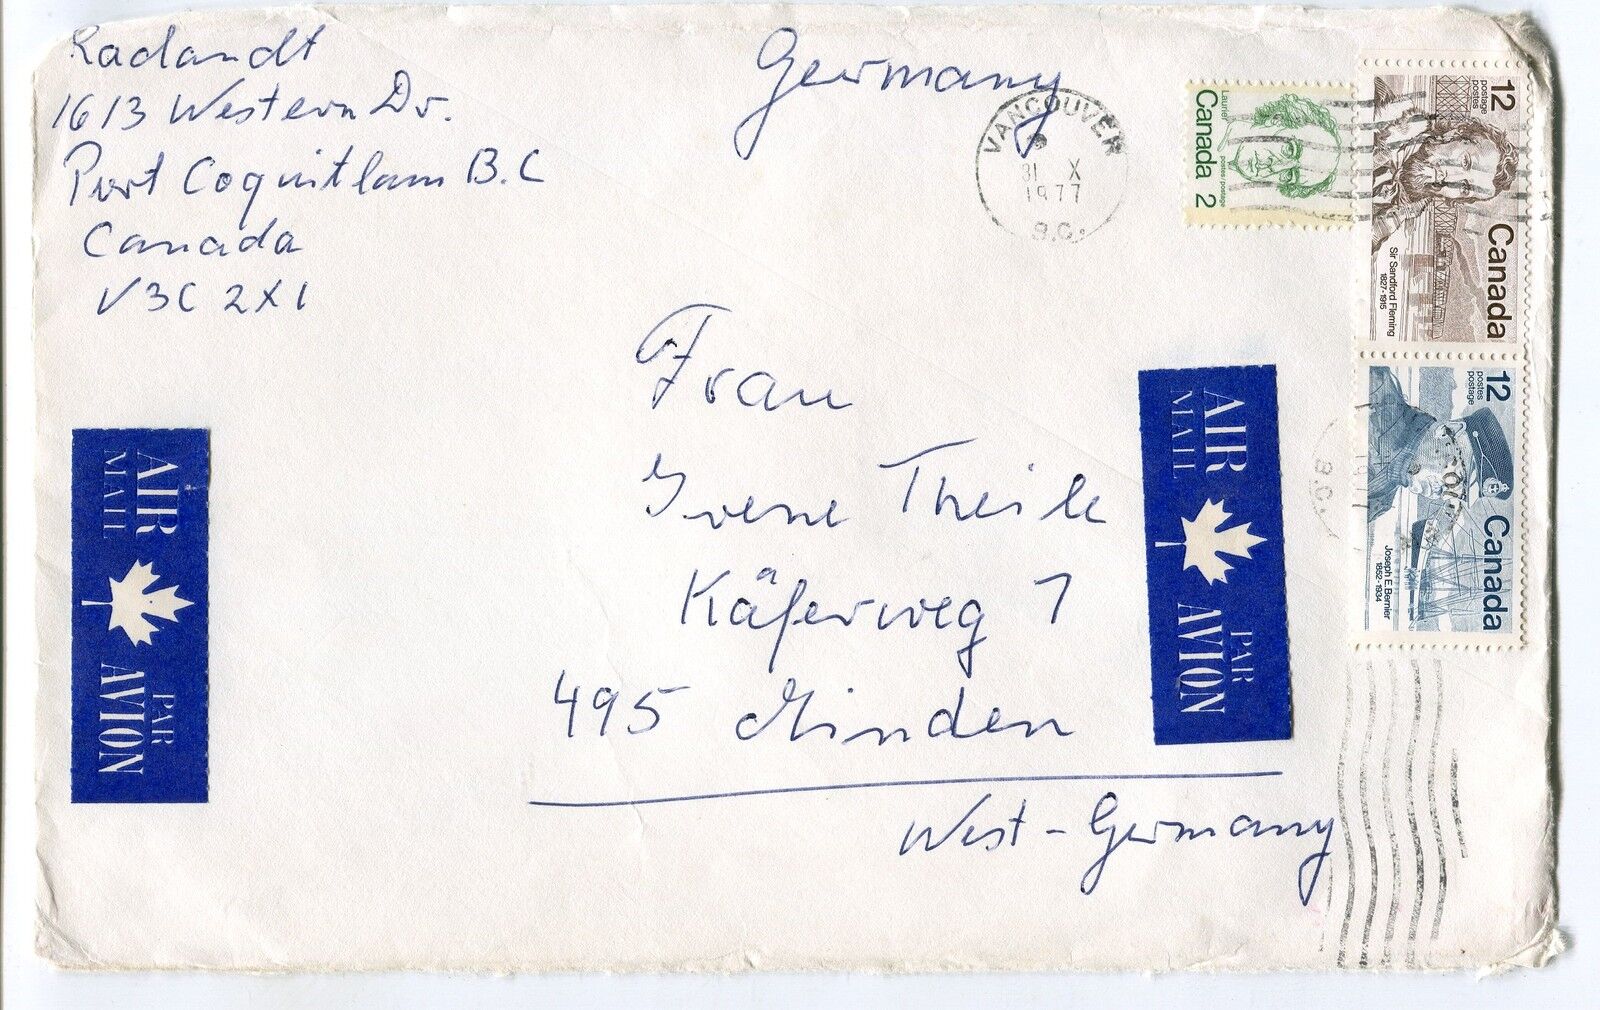 Radandt
1613 Western Dr.
Port Coquitlam B.C
Canada
V3C 2X1
Germany
VANCOUVER
31 X
1977
B.C.
Laurier postes postage
Canada 2
12
postes
postage
Canada
Sir Sandford Fleming
1827-1915
12
postes
postage
Canada
Joseph E. Bernier
1852-1934
1977
B.C.
Frau
Irene Theile
Käferweg 7
495 Minden
West-Germany
AIR
MAIL
PAR
AVION
AIR
MAIL
PAR
AVION